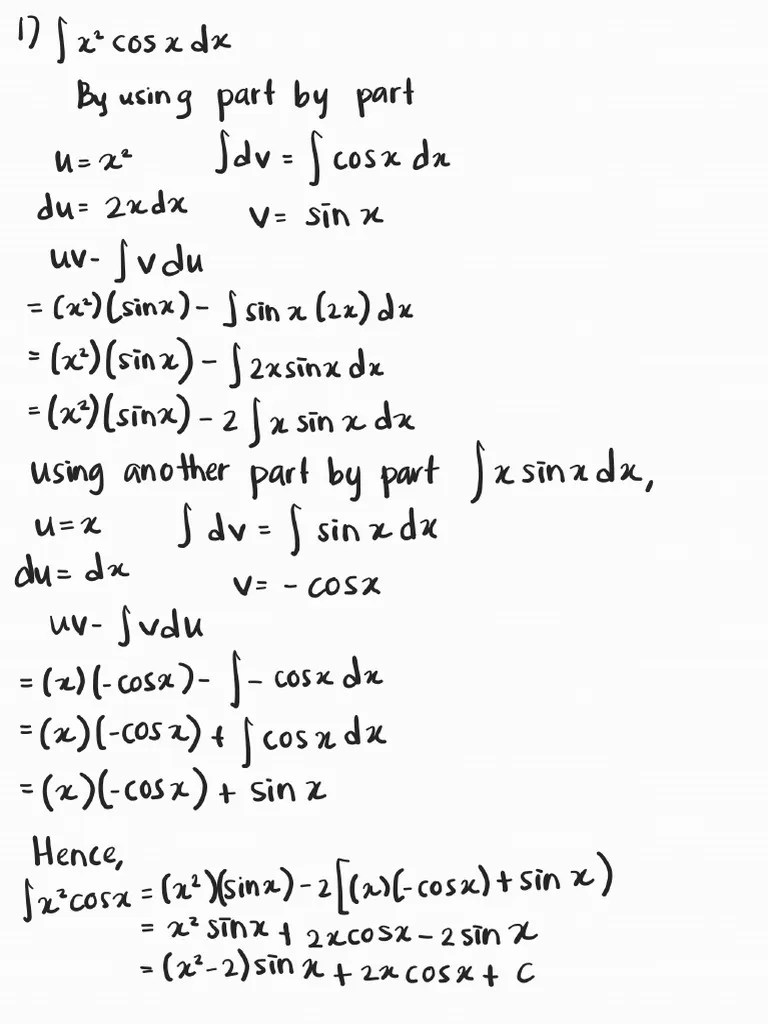 1) ∫ x² cos x dx
By using part by part
u = x² ∫dv = ∫ cosx dx
du = 2x dx v = sin x
uv - ∫ v du
= (x²)(sinx) - ∫ sin x (2x) dx
= (x²)(sinx) - ∫ 2x sinx dx
= (x²)(sinx) - 2 ∫ x sin x dx
using another part by part ∫ x sinx dx,
u = x ∫ dv = ∫ sin x dx
du = dx v = - cosx
uv - ∫ v du
= (x)(-cosx) - ∫ - cosx dx
= (x)(-cos x) + ∫ cos x dx
= (x)(-cosx) + sin x
Hence,
∫ x² cosx = (x²)(sinx) - 2[(x)(-cosx) + sin x)
= x² sinx + 2x cosx - 2 sin x
= (x² - 2) sin x + 2x cosx + C